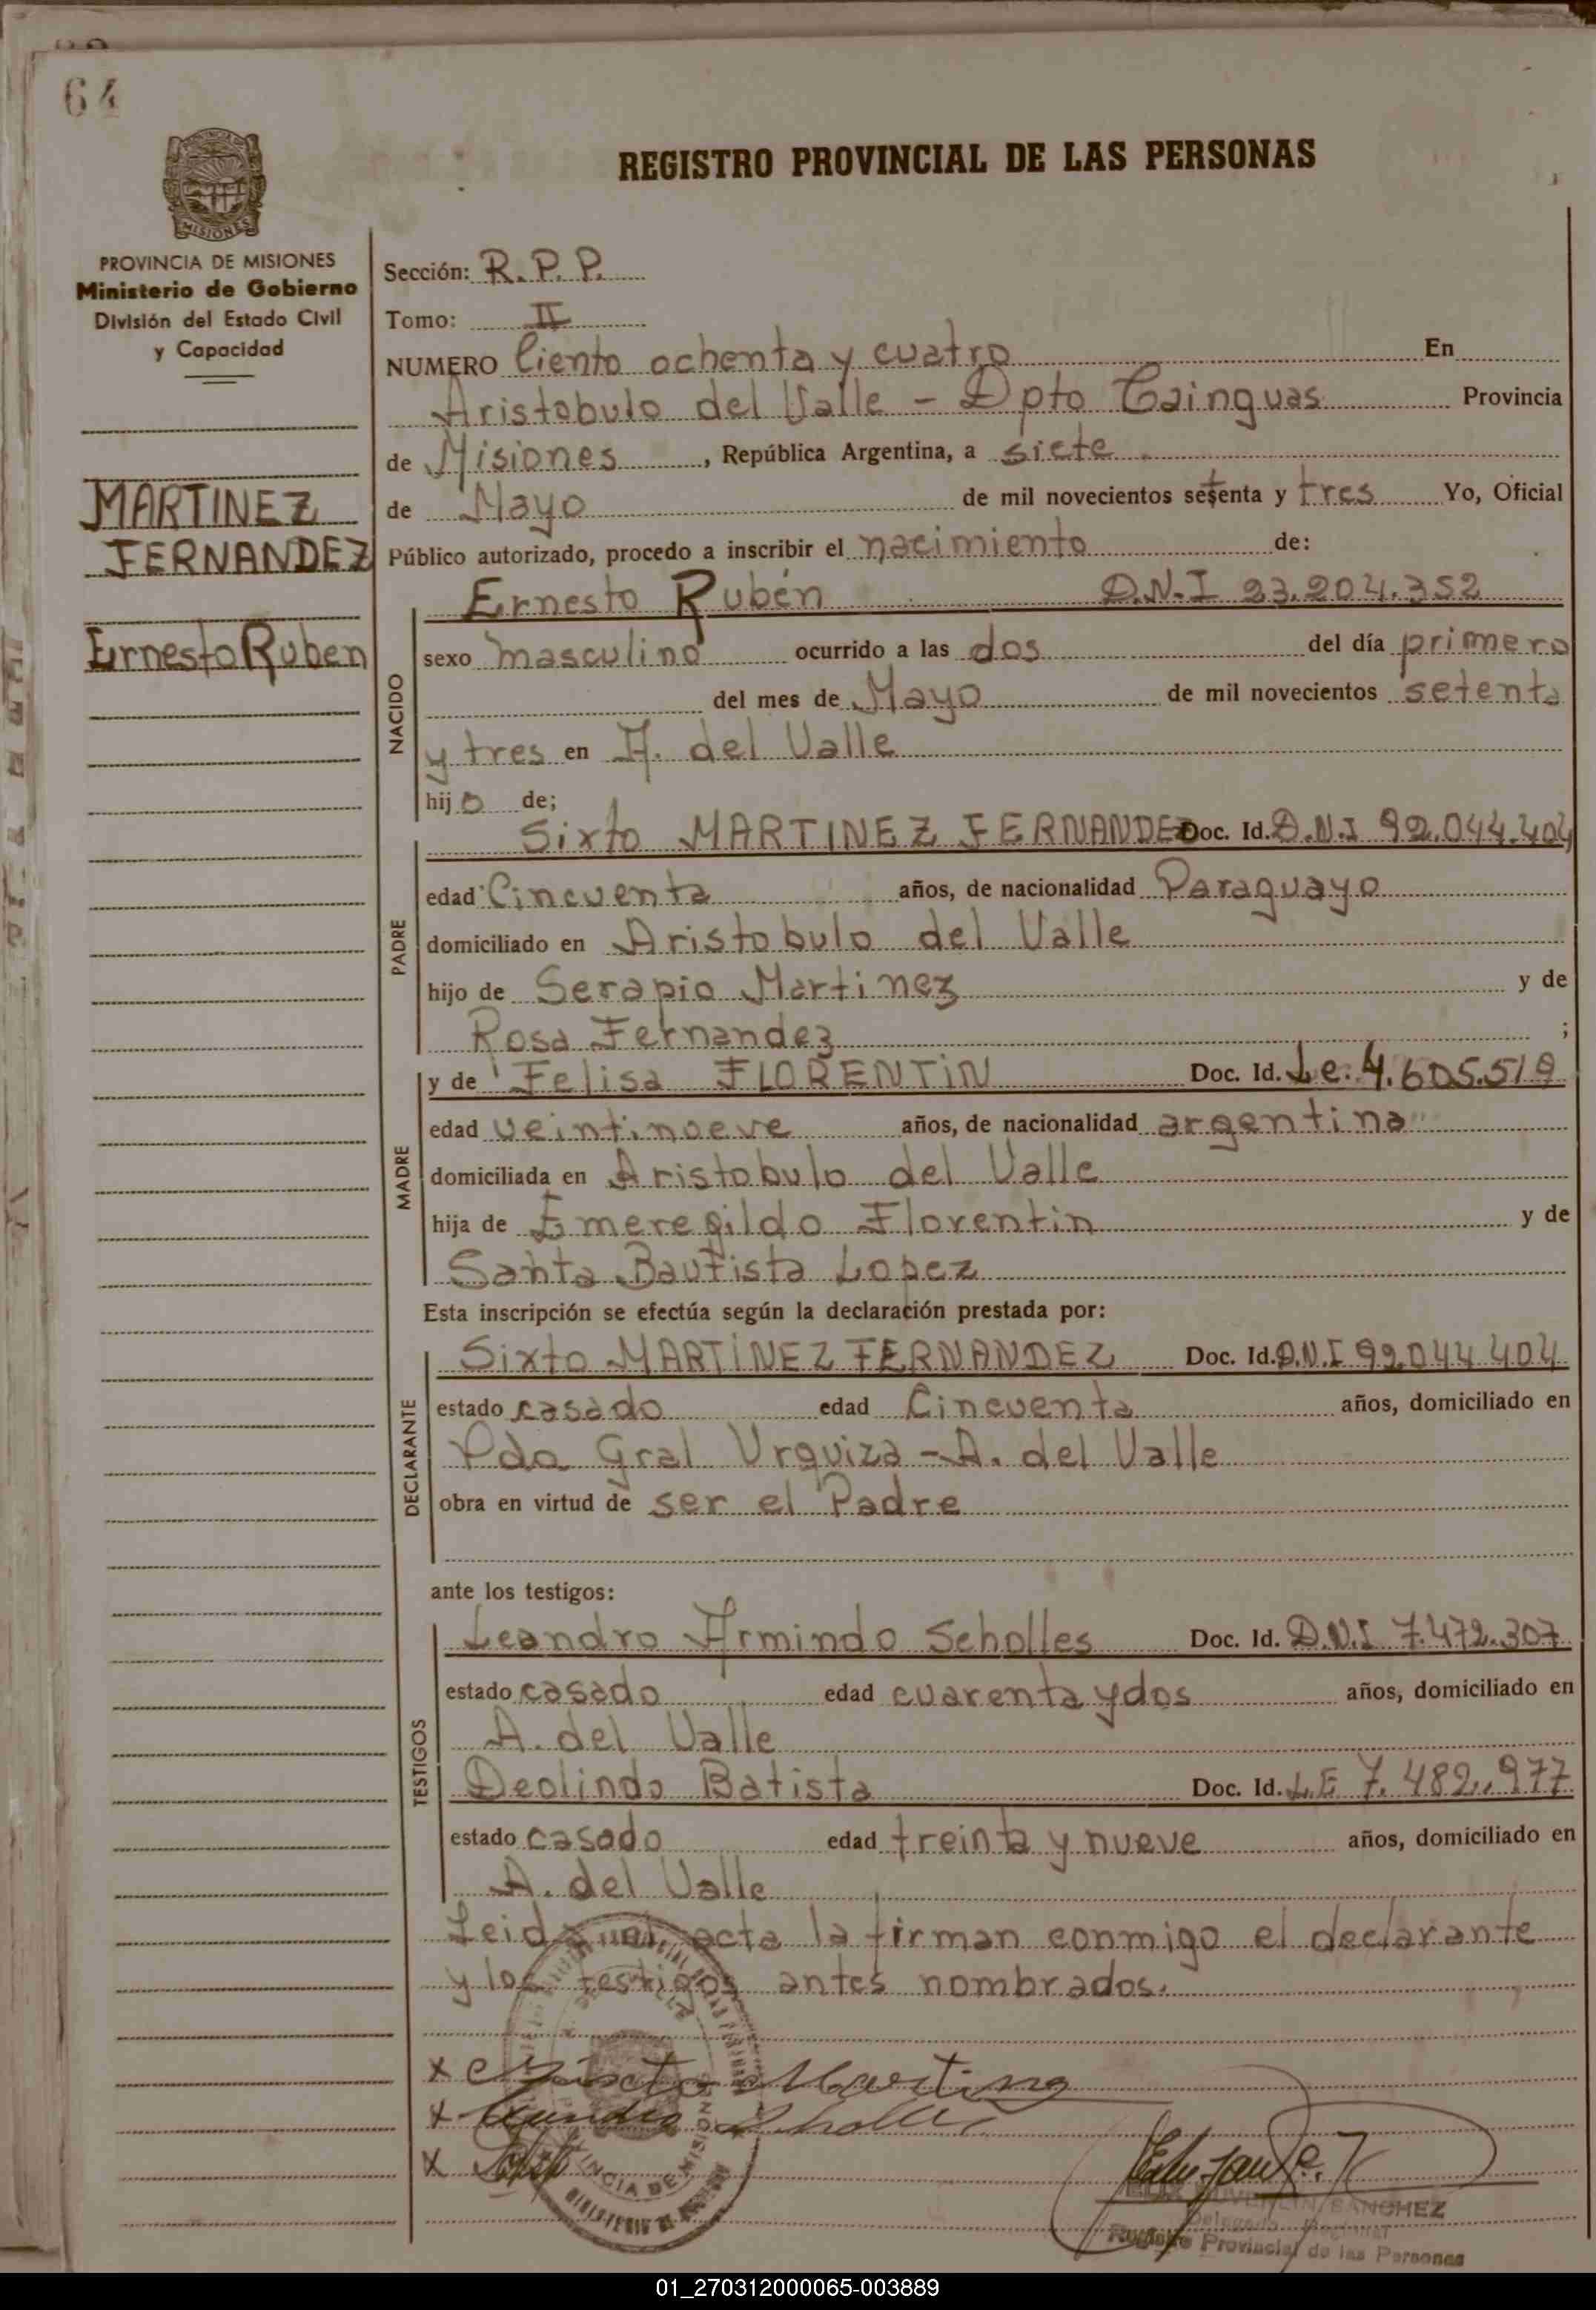 64
REGISTRO PROVINCIAL DE LAS PERSONAS
MISIONES
PROVINCIA DE MISIONES
Ministerio de Gobierno
División del Estado Civil
y Capacidad
MARTINEZ
FERNANDEZ
Ernesto Ruben
Sección: R.P.P.
Tomo: II
NUMERO Ciento ochenta y cuatro En
Aristobulo del Valle - Dpto Cainguas Provincia
de Misiones, República Argentina, a siete
de Mayo de mil novecientos setenta y tres Yo, Oficial
Público autorizado, procedo a inscribir el nacimiento de:
NACIDO
Ernesto Rubén D.N.I 23.204.352
sexo masculino ocurrido a las dos del día primero
del mes de Mayo de mil novecientos setenta
y tres en A. del Valle
hijo de;
PADRE
Sixto MARTINEZ FERNANDEZ Doc. Id. D.N.I 92.044.404
edad Cincuenta años, de nacionalidad Paraguayo
domiciliado en Aristobulo del Valle
hijo de Serapio Martinez y de
Rosa Fernandez ;
MADRE
y de Felisa FLORENTIN Doc. Id. L.e. 4.605.519
edad veintinueve años, de nacionalidad argentina
domiciliada en Aristobulo del Valle
hija de Emeregildo Florentin y de
Santa Bautista Lopez
Esta inscripción se efectúa según la declaración prestada por:
DECLARANTE
Sixto MARTINEZ FERNANDEZ Doc. Id. D.N.I 92.044.404
estado casado edad Cincuenta años, domiciliado en
Pda Gral Urquiza - A. del Valle
obra en virtud de ser el Padre
ante los testigos:
TESTIGOS
Leandro Armindo Scholles Doc. Id. D.N.I 7.472.307
estado casado edad cuarenta y dos años, domiciliado en
A. del Valle
Deolindo Batista Doc. Id. L.E 7.482.977
estado casado edad treinta y nueve años, domiciliado en
A. del Valle
Leida el acta la firman conmigo el declarante
y los testigos antes nombrados.
x Sixto Martinez
x Leandro Scholles
x
PROVINCIA DE MISIONES
SANCHEZ
Delegado Regional
Registro Provincial de las Personas
01_270312000065-003889